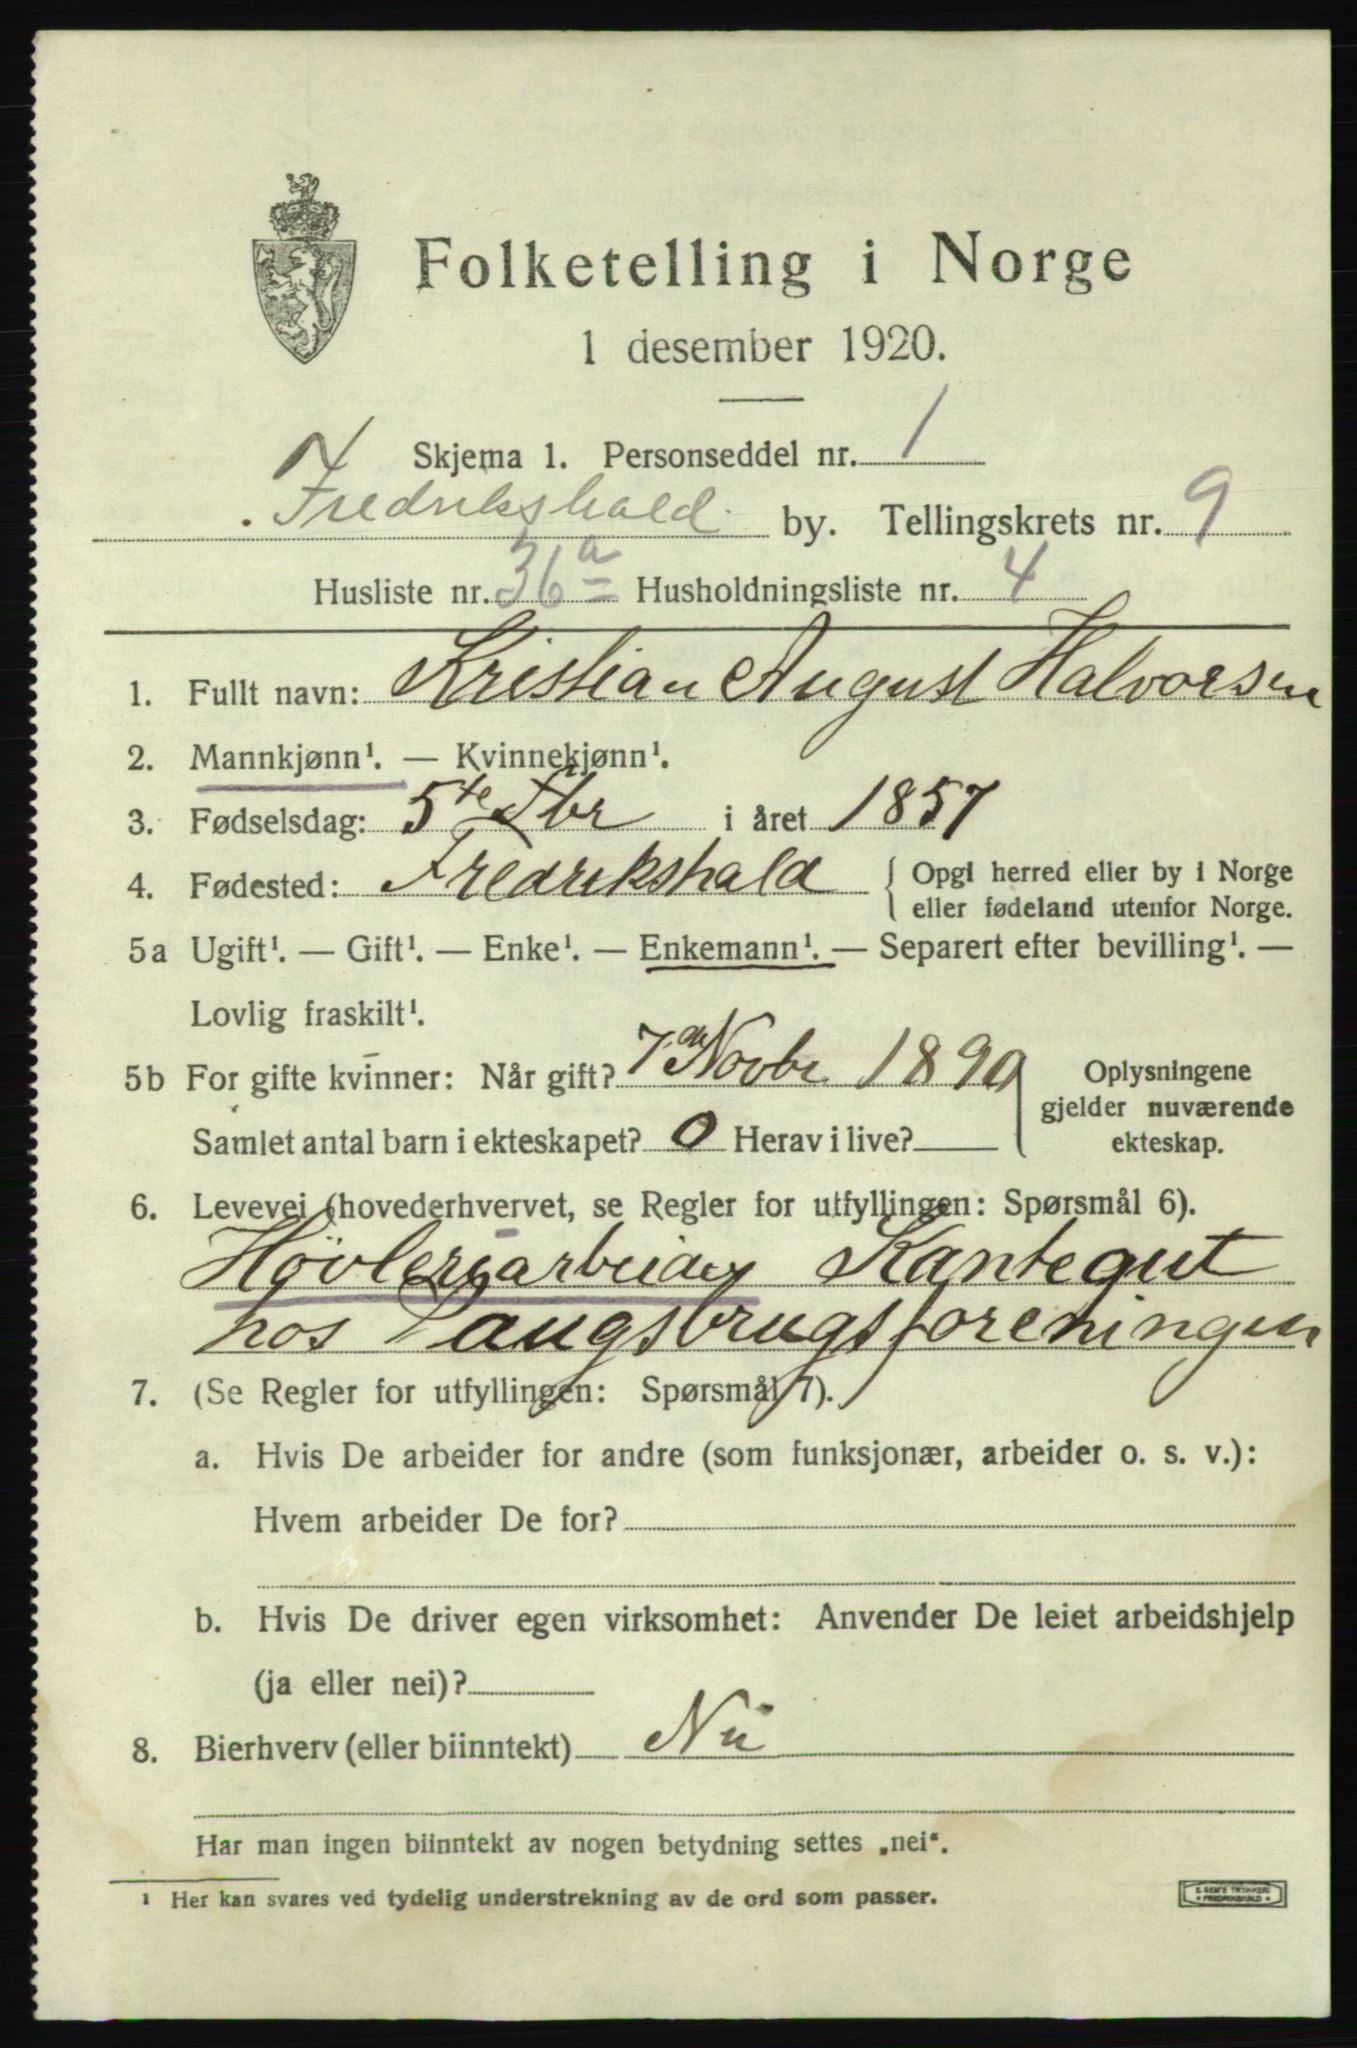 Folketelling i Norge
1 desember 1920.
Skjema 1. Personseddel nr. 1
Fredrikshald by. Tellingskrets nr. 9
Husliste nr. 36a Husholdningsliste nr. 4
1. Fullt navn: Kristian August Halvorsen
2. Mannkjønn¹. — Kvinnekjønn¹.
3. Fødselsdag: 5te Fbr i året 1857
4. Fødested: Fredrikshald { Opgi herred eller by i Norge
eller fødeland utenfor Norge.
5a Ugift¹. — Gift¹. — Enke¹. — Enkemann¹. — Separert efter bevilling¹. —
Lovlig fraskilt¹.
5b For gifte kvinner: Når gift? 7de Novbr 1890
Samlet antal barn i ekteskapet? 0 Herav i live?
Oplysningene
gjelder nuværende
ekteskap.
6. Levevei (hovederhvervet, se Regler for utfyllingen: Spørsmål 6).
Høvleriarbeider Kantegut
hos Saugsbrugsforeningen
7. (Se Regler for utfyllingen: Spørsmål 7).
a. Hvis De arbeider for andre (som funksjonær, arbeider o. s. v.):
Hvem arbeider De for?
b. Hvis De driver egen virksomhet: Anvender De leiet arbeidshjelp
(ja eller nei)?
8. Bierhverv (eller biinntekt) Nei
Har man ingen biinntekt av nogen betydning settes „nei“.
¹ Her kan svares ved tydelig understrekning av de ord som passer.
E. SEM'S TRYKKERI
FREDRIKSHALD